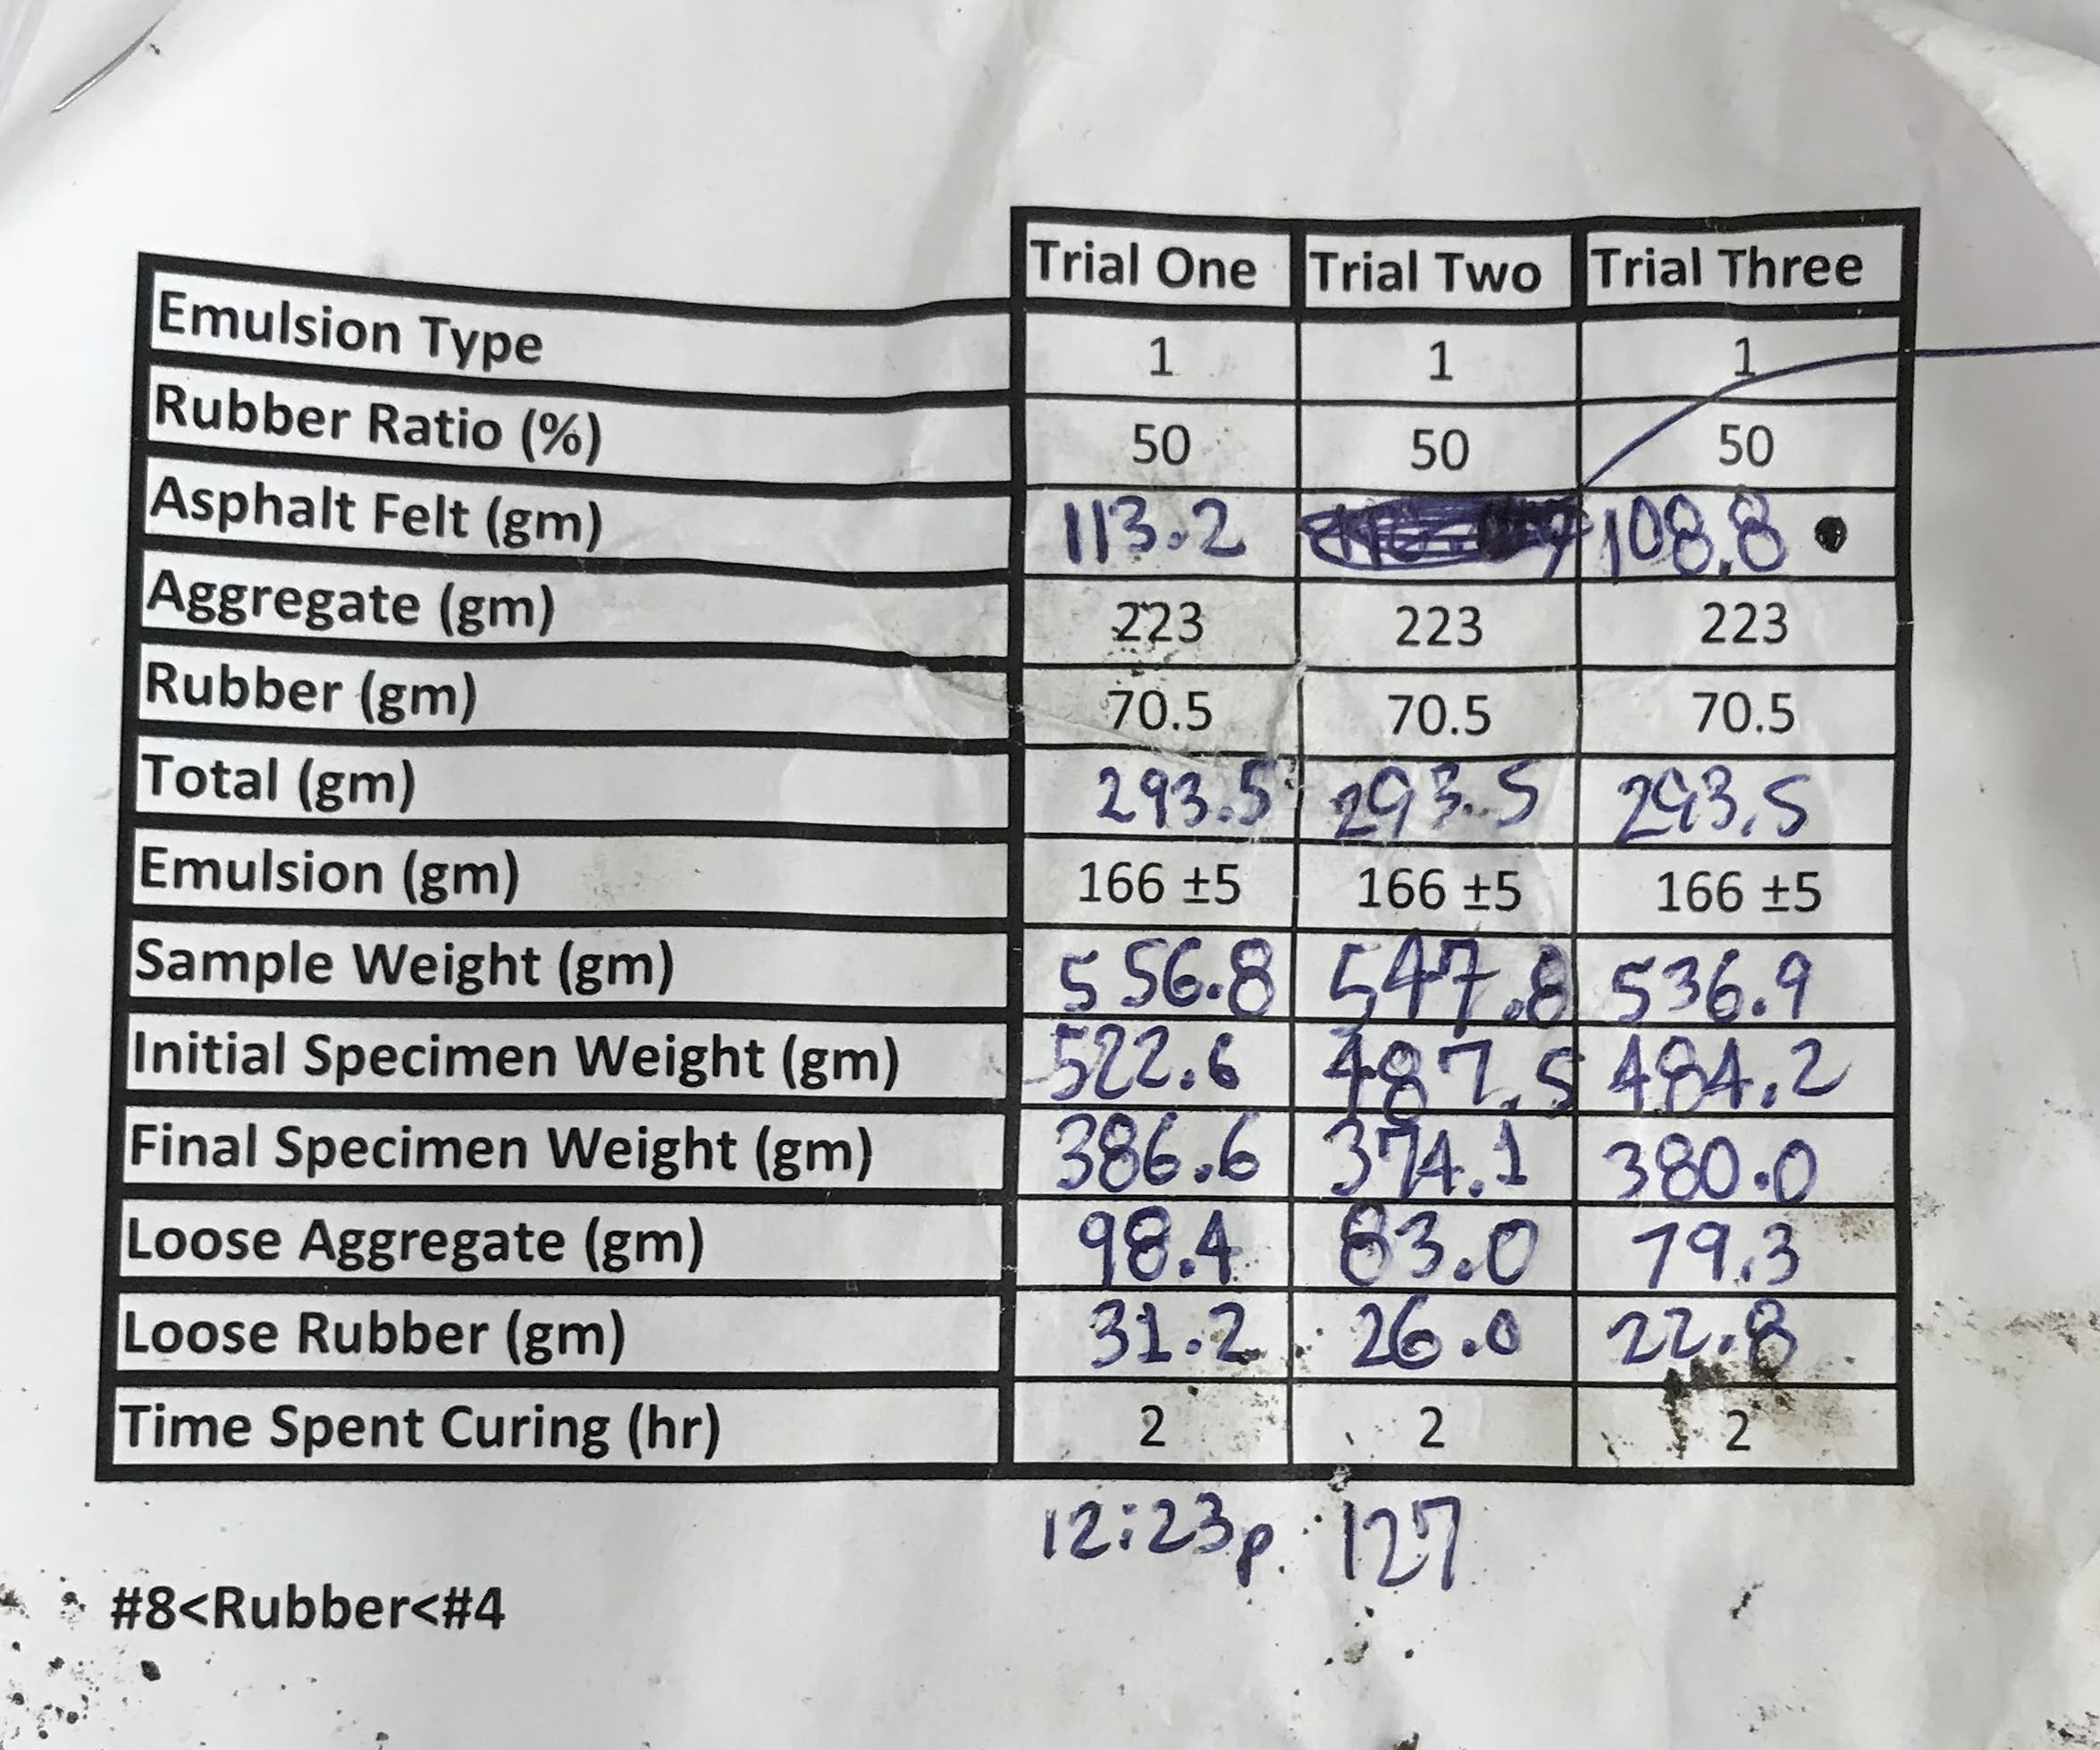 Trial One Trial Two Trial Three
Emulsion Type 1 1 1
Rubber Ratio (%) 50 50 50
Asphalt Felt (gm) 113.2 108.8
Aggregate (gm) 223 223 223
Rubber (gm) 70.5 70.5 70.5
Total (gm) 293.5 293.5 293.5
Emulsion (gm) 166 ±5 166 ±5 166 ±5
Sample Weight (gm) 556.8 547.8 536.9
Initial Specimen Weight (gm) 522.6 487.5 484.2
Final Specimen Weight (gm) 386.6 374.1 380.0
Loose Aggregate (gm) 98.4 83.0 79.3
Loose Rubber (gm) 31.2 26.0 22.8
Time Spent Curing (hr) 2 2 2
12:23p 127
#8<Rubber<#4